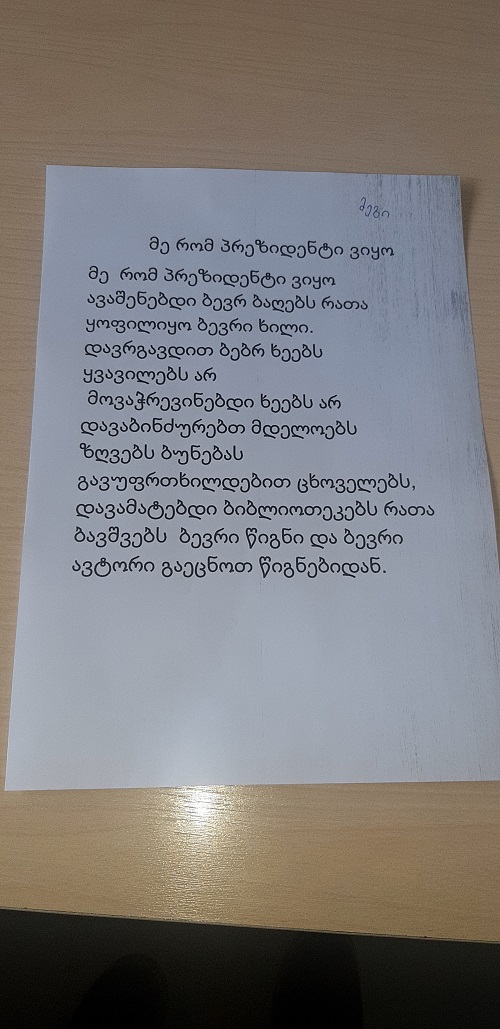 მეგი
მე რომ პრეზიდენტი ვიყო
მე რომ პრეზიდენტი ვიყო
ავაშენებდი ბევრ ბაღებს რათა
ყოფილიყო ბევრი ხილი.
დავრგავდით ბებრ ხეებს
ყვავილებს არ
მოვაჭრევინებდი ხეებს არ
დავაბინძურებთ მდელოებს
ზღვებს ბუნებას
გავუფრთხილდებით ცხოველებს,
დავამატებდი ბიბლიოთეკებს რათა
ბავშვებს ბევრი წიგნი და ბევრი
ავტორი გაეცნოთ წიგნებიდან.